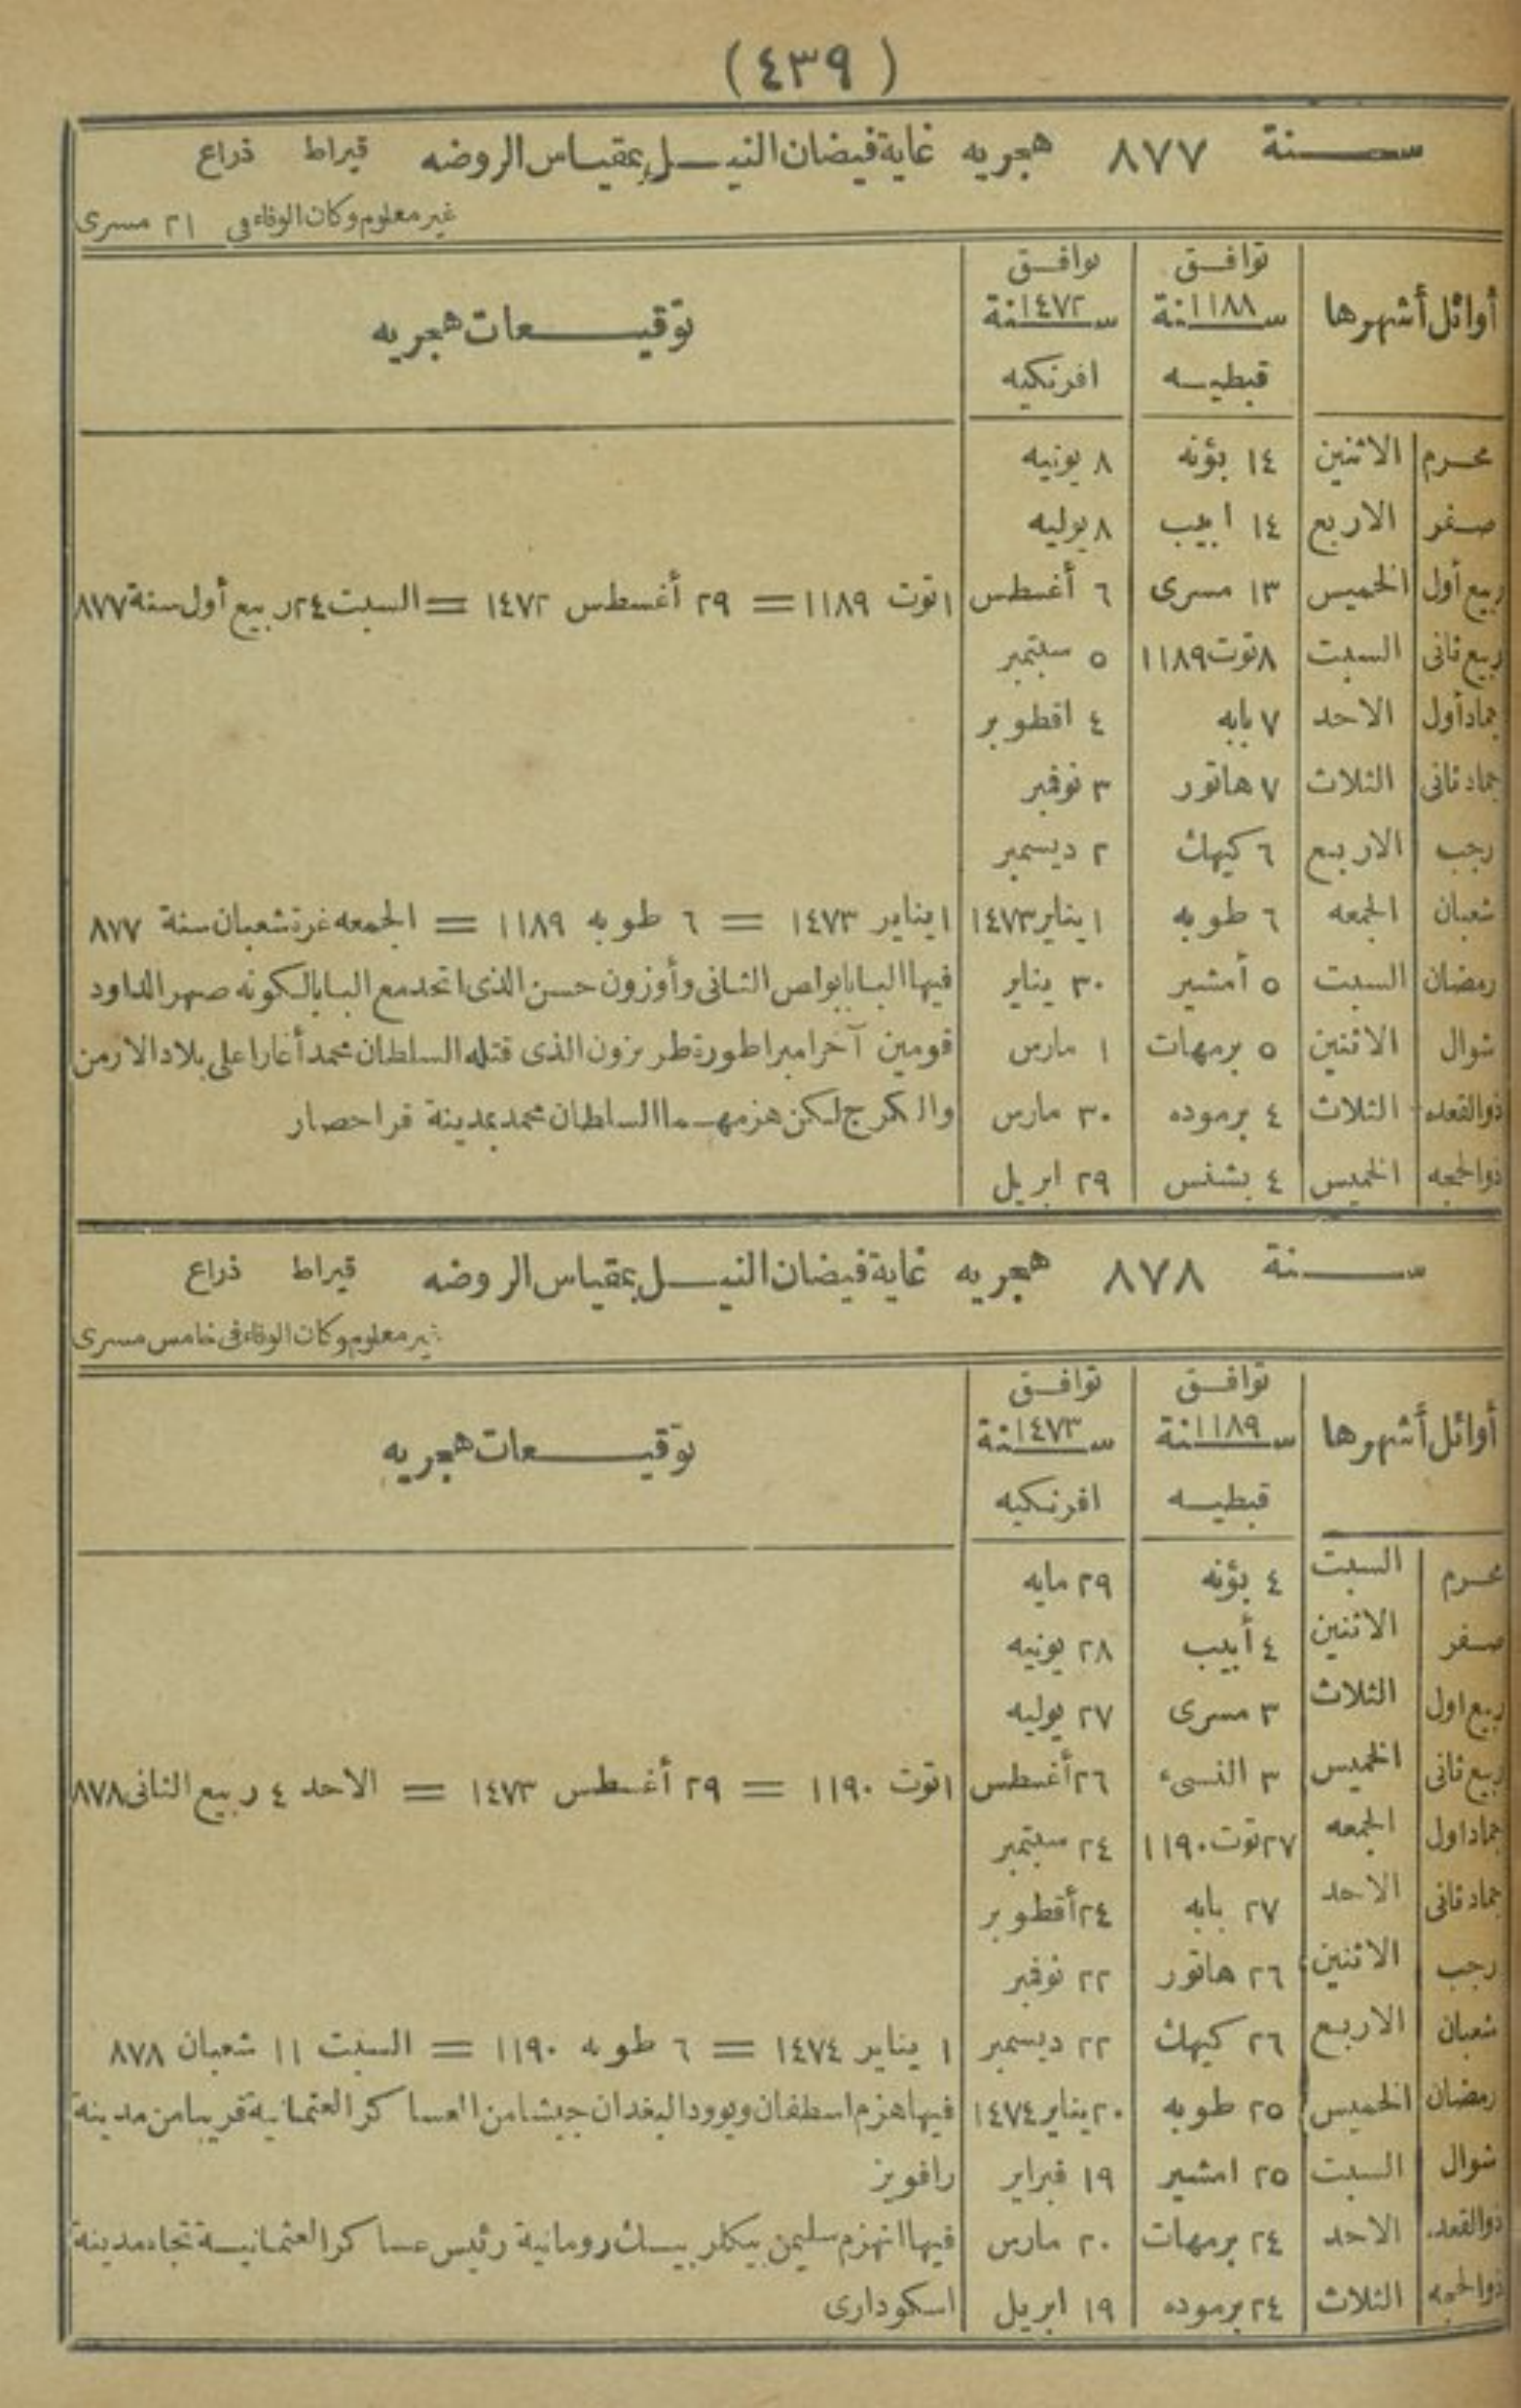 (٤٣٩)
سنة ٨٧٧ هجريه غاية فيضان النيل بمقياس الروضه قيراط ذراع
غير معلوم وكان الوفاء فى ٢١ مسرى
أوائل أشهرها توافق سنة ١١٨٨ قبطيه توافق سنة ١٤٧٢ افرنكيه توقيعات هجريه
محرم الاثنين ١٤ بؤنه ٨ يونيه
صفر الاربع ١٤ ابيب ٨ يوليه
ربيع أول الخميس ١٣ مسرى ٦ أغسطس ١ توت ١١٨٩ = ٢٩ أغسطس ١٤٧٢ = السبت ٢٤ ربيع أول سنة ٨٧٧
ربيع ثانى السبت ٨ توت ١١٨٩ ٥ سبتمبر
جماد أول الاحد ٧ بابه ٤ اقطوبر
جماد ثانى الثلاث ٧ هاتور ٣ نوفمبر
رجب الاربع ٦ كيهك ٢ ديسمبر
شعبان الجمعه ٦ طوبه ١ يناير ١٤٧٣ ١ يناير ١٤٧٣ = ٦ طوبه ١١٨٩ = الجمعه غرة شعبان سنة ٨٧٧
رمضان السبت ٥ أمشير ٣٠ يناير فيها البابا بولص الثانى وأوزون حسن الذى اتحد مع البابا لكونه صهر الداود
شوال الاثنين ٥ برمهات ١ مارس قومين آخر امبراطورة طربزون الذى قتله السلطان محمد أغارا على بلاد الارمن
ذوالقعده الثلاث ٤ برموده ٣٠ مارس والكرج لكن هزمهما السلطان محمد بمدينة قراحصار
ذوالحجه الخميس ٤ بشنس ٢٩ ابريل
سنة ٨٧٨ هجريه غاية فيضان النيل بمقياس الروضه قيراط ذراع
غير معلوم وكان الوفاء فى خامس مسرى
أوائل أشهرها توافق سنة ١١٨٩ قبطيه توافق سنة ١٤٧٣ افرنكيه توقيعات هجريه
محرم السبت ٤ بؤنه ٢٩ مايه
صفر الاثنين ٤ أبيب ٢٨ يونيه
ربيع اول الثلاث ٣ مسرى ٢٧ يوليه
ربيع ثانى الخميس ٣ النسىء ٢٦ أغسطس ١ توت ١١٩٠ = ٢٩ أغسطس ١٤٧٣ = الاحد ٤ ربيع الثانى ٨٧٨
جماد اول الجمعه ٢٧ توت ١١٩٠ ٢٤ سبتمبر
جماد ثانى الاحد ٢٧ بابه ٢٤ أقطوبر
رجب الاثنين ٢٦ هاتور ٢٢ نوفمبر
شعبان الاربع ٢٦ كيهك ٢٢ ديسمبر ١ يناير ١٤٧٤ = ٦ طوبه ١١٩٠ = السبت ١١ شعبان ٨٧٨
رمضان الخميس ٢٥ طوبه ٢٠ يناير ١٤٧٤ فيها هزم اسطفان ويوودا البغدان جيشا من العساكر العثمانية قريبا من مدينة
شوال السبت ٢٥ امشير ١٩ فبراير رافويز
ذوالقعده الاحد ٢٤ برمهات ٢٠ مارس فيها انهزم سليمن بيكلر بيك رومانية رئيس عساكر العثمانية تجاه مدينة
ذوالحجه الثلاث ٢٤ برموده ١٩ ابريل اسكودارى